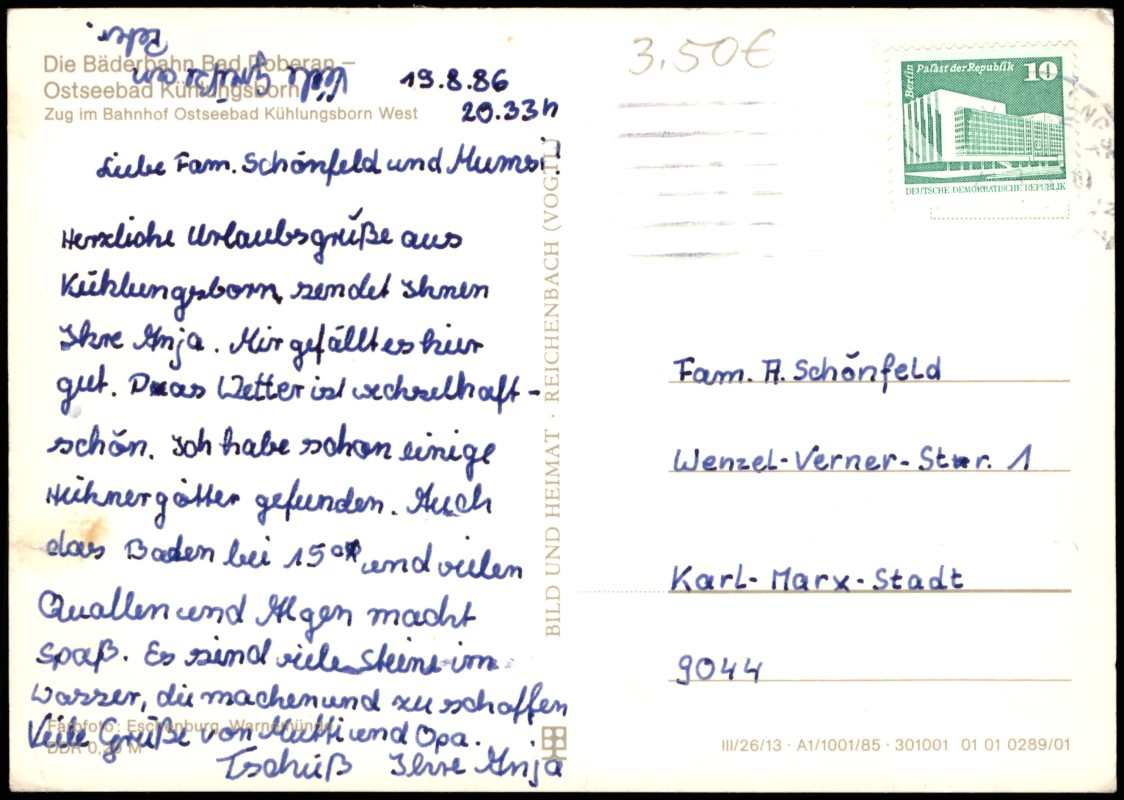 Die Bäderbahn Bad Doberan –
Ostseebad Kühlungsborn
Zug im Bahnhof Ostseebad Kühlungsborn West
Viele Grüße an
Peter.
19.8.86
20.33h
Liebe Fam. Schönfeld und Mumsi!
Herzliche Urlaubsgrüße aus
Kühlungsborn, sendet Ihnen
Ihre Anja. Mir gefällt es hier
gut. Das Wetter ist wechselhaft -
schön. Ich habe schon einige
Hühnergötter gefunden. Auch
das Baden bei 15° und vielen
Quallen und Algen macht
spaß. Es sind viele Steine im
Wasser, die machen und zu schaffen
Viele Grüße von Mutti und Opa.
Tschüß Ihre Anja
Farbfoto: Eschenburg, Warnemünde
DDR 0,20 M
BILD UND HEIMAT · REICHENBACH (VOGTL)
3.50€
Berlin Palast der Republik 10
DEUTSCHE DEMOKRATISCHE REPUBLIK
Fam. A. Schönfeld
Wenzel-Verner-Str. 1
Karl-Marx-Stadt
9044
III/26/13 · A1/1001/85 · 301001 01 01 0289/01